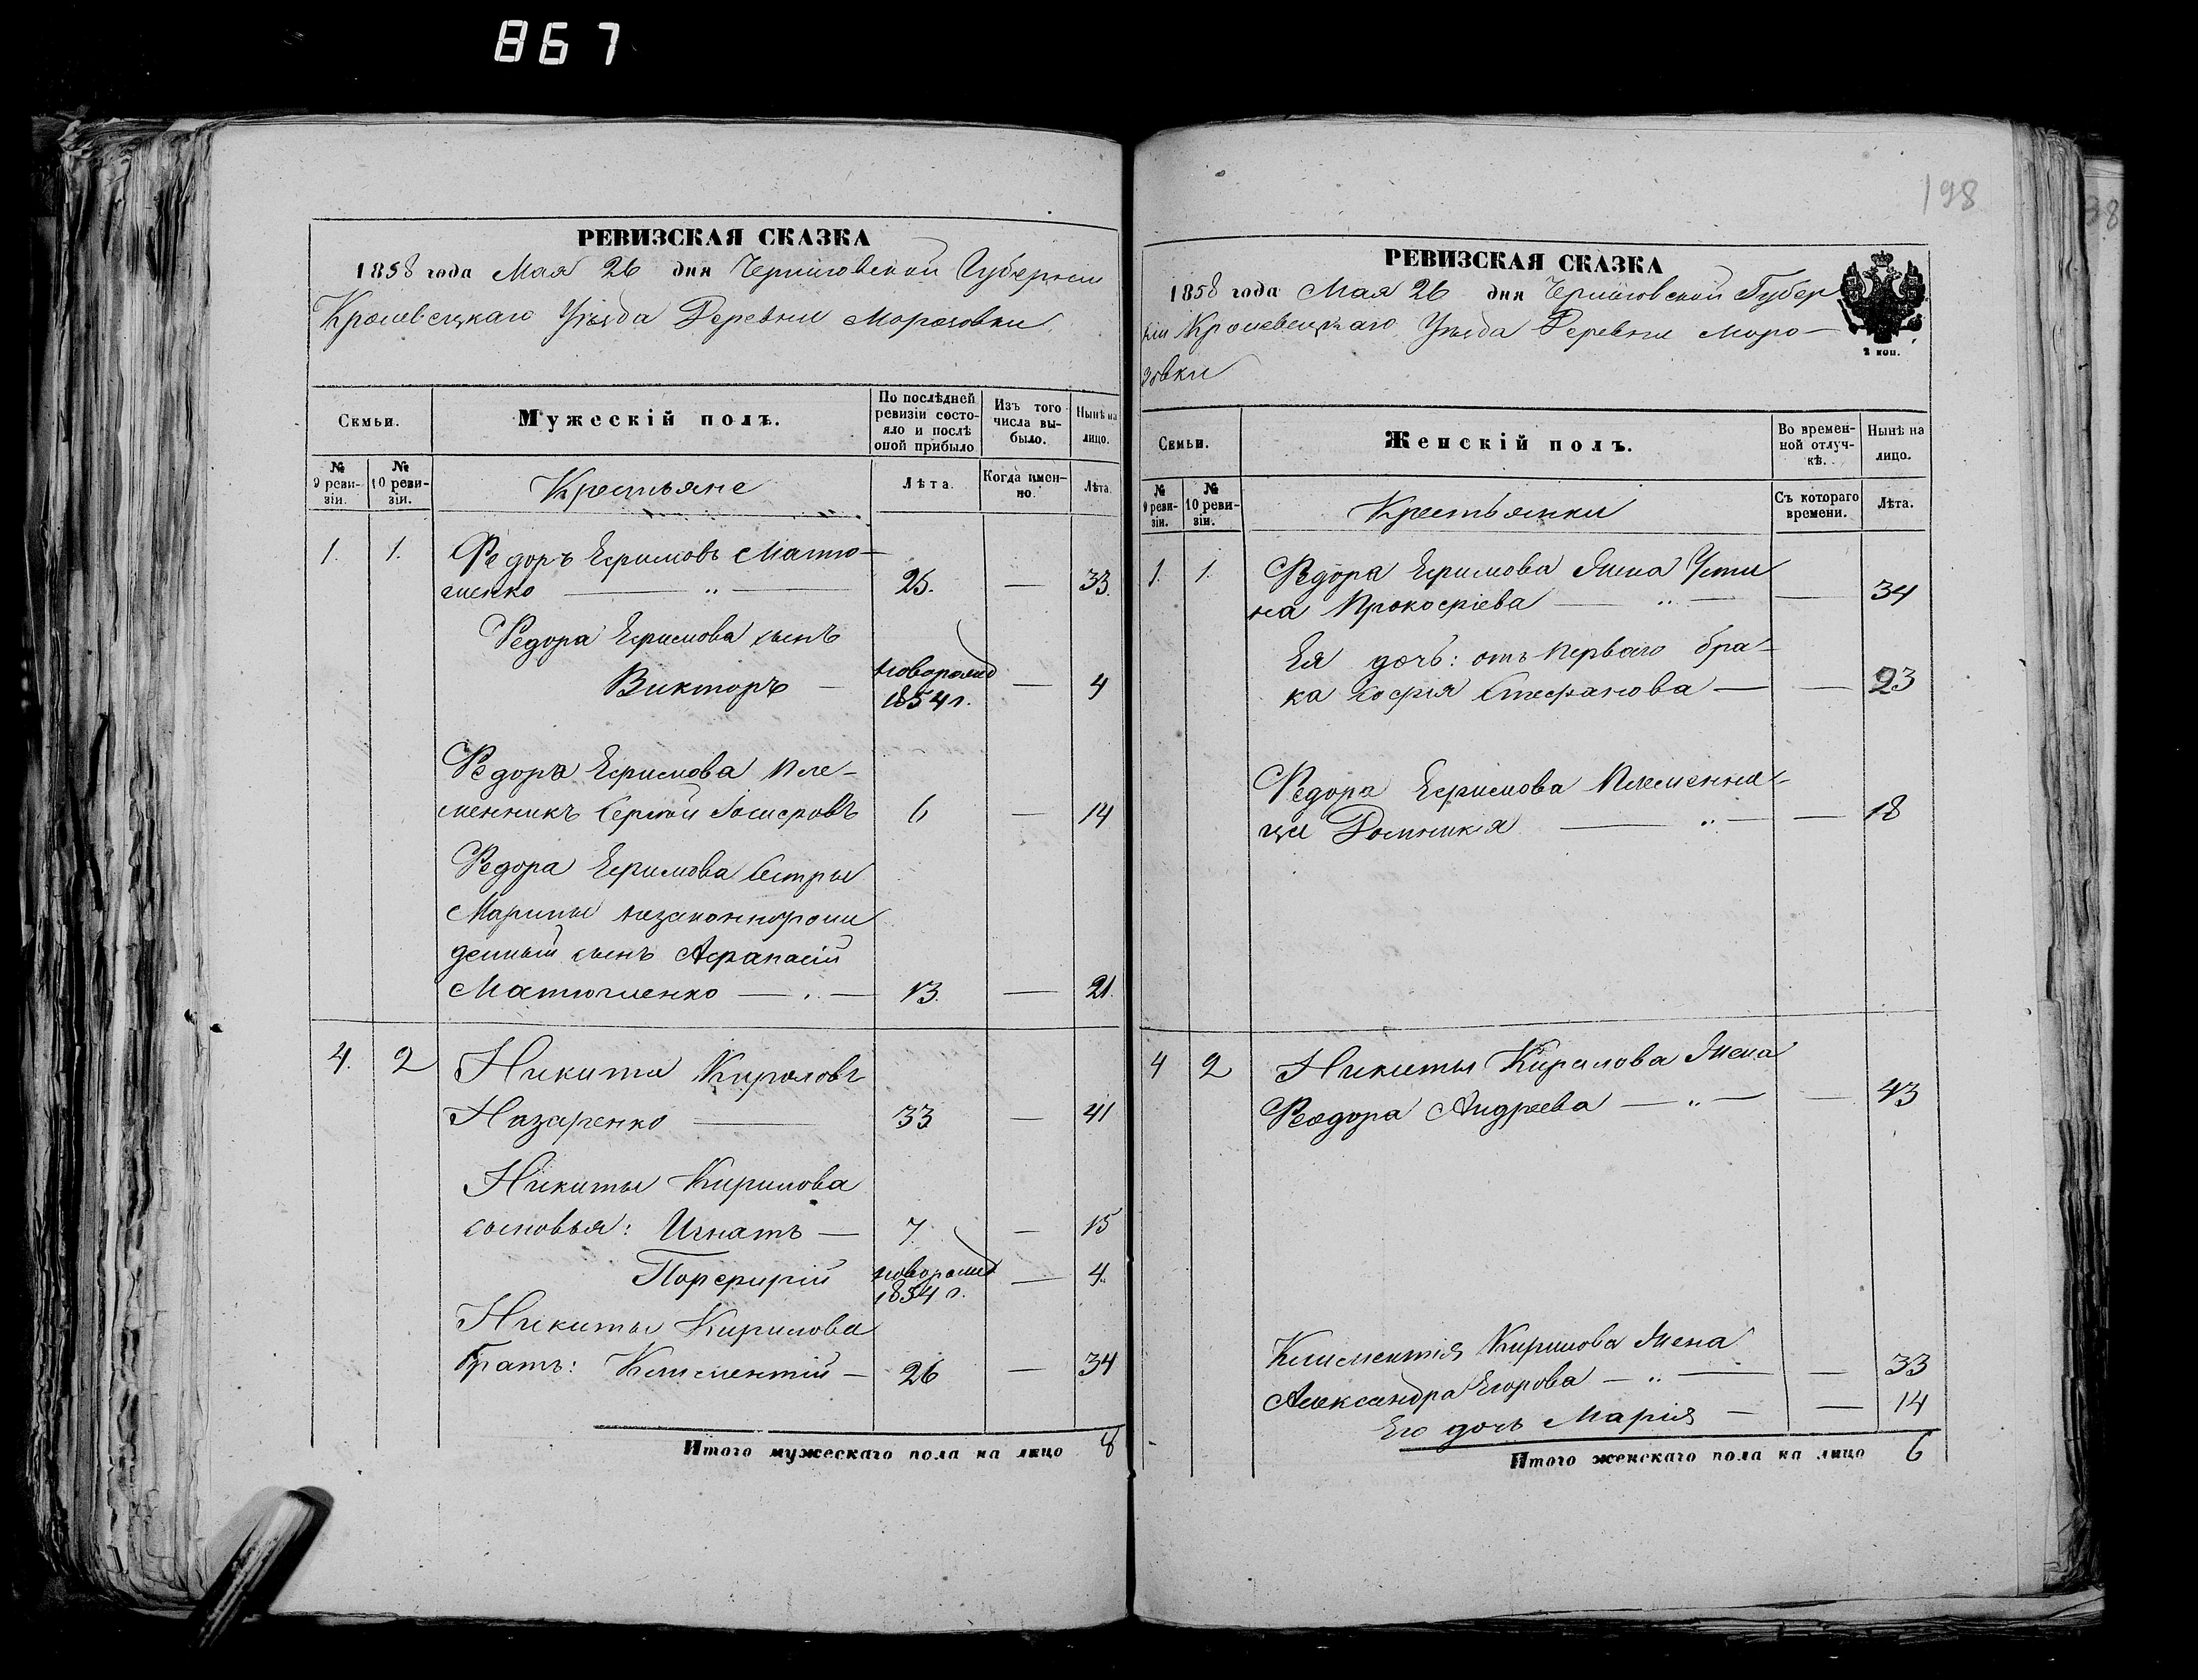 867
198
РЕВИЗСКАЯ СКАЗКА
1858 года Мая 26 дня Черниговской Губернии
Кролевецкаго Уѣзда Деревни Морозовки
Семьи.
Мужескій полъ.
По послѣдней ревизіи состояло и послѣ оной прибыло
Изъ того числа выбыло.
Нынѣ на лицо.
№ 9 ревизіи.
№ 10 ревизіи.
Крестьяне
Лѣта.
Когда именно.
Лѣта.
1. 1. Федоръ Ефимовъ Матю-
шенко — „ — 25. — 33.
Федора Ефимова сынъ
Викторъ — новорожд 1854 г. — 4
Федора Ефимова пле-
менникъ Сергѣй Іосифовъ 6 — 14
Федора Ефимова сестры
Марины незаконнорож
денный сынъ Афанасій
Матюшенко — „ — 13. — 21.
4. 2 Никита Кириловъ
Назаренко — 33 — 41
Никиты Кирилова
сыновья: Игнатъ — 7. — 15
Порфирій новорожд 1854 г. — 4.
Никиты Кирилова
братъ: Климентій — 26 — 34
Итого мужескаго пола на лицо 8
РЕВИЗСКАЯ СКАЗКА
1858 года Мая 26 дня Черниговской Губер
ніи Кролевецкаго Уѣзда Деревни Моро-
зовки
2 коп.
Семьи.
Женскій полъ.
Во временной отлучкѣ.
Нынѣ на лицо.
№ 9 ревизіи.
№ 10 ревизіи.
Крестьянки
Съ котораго времени.
Лѣта.
1. 1. Федора Ефимова жена Усти
на Прокофіева — „ — — 34
Ея дочь: отъ перваго бра-
ка Софія Стефанова — — 23
Федора Ефимова племенни-
ца Домникія — „ — — 18
4 2 Никиты Кирилова жена
Феодора Андреева — „ — — 43
Климентія Кирилова жена
Александра Егорова — „ — — 33
Его дочь Марія — — 14
Итого женскаго пола на лицо 6